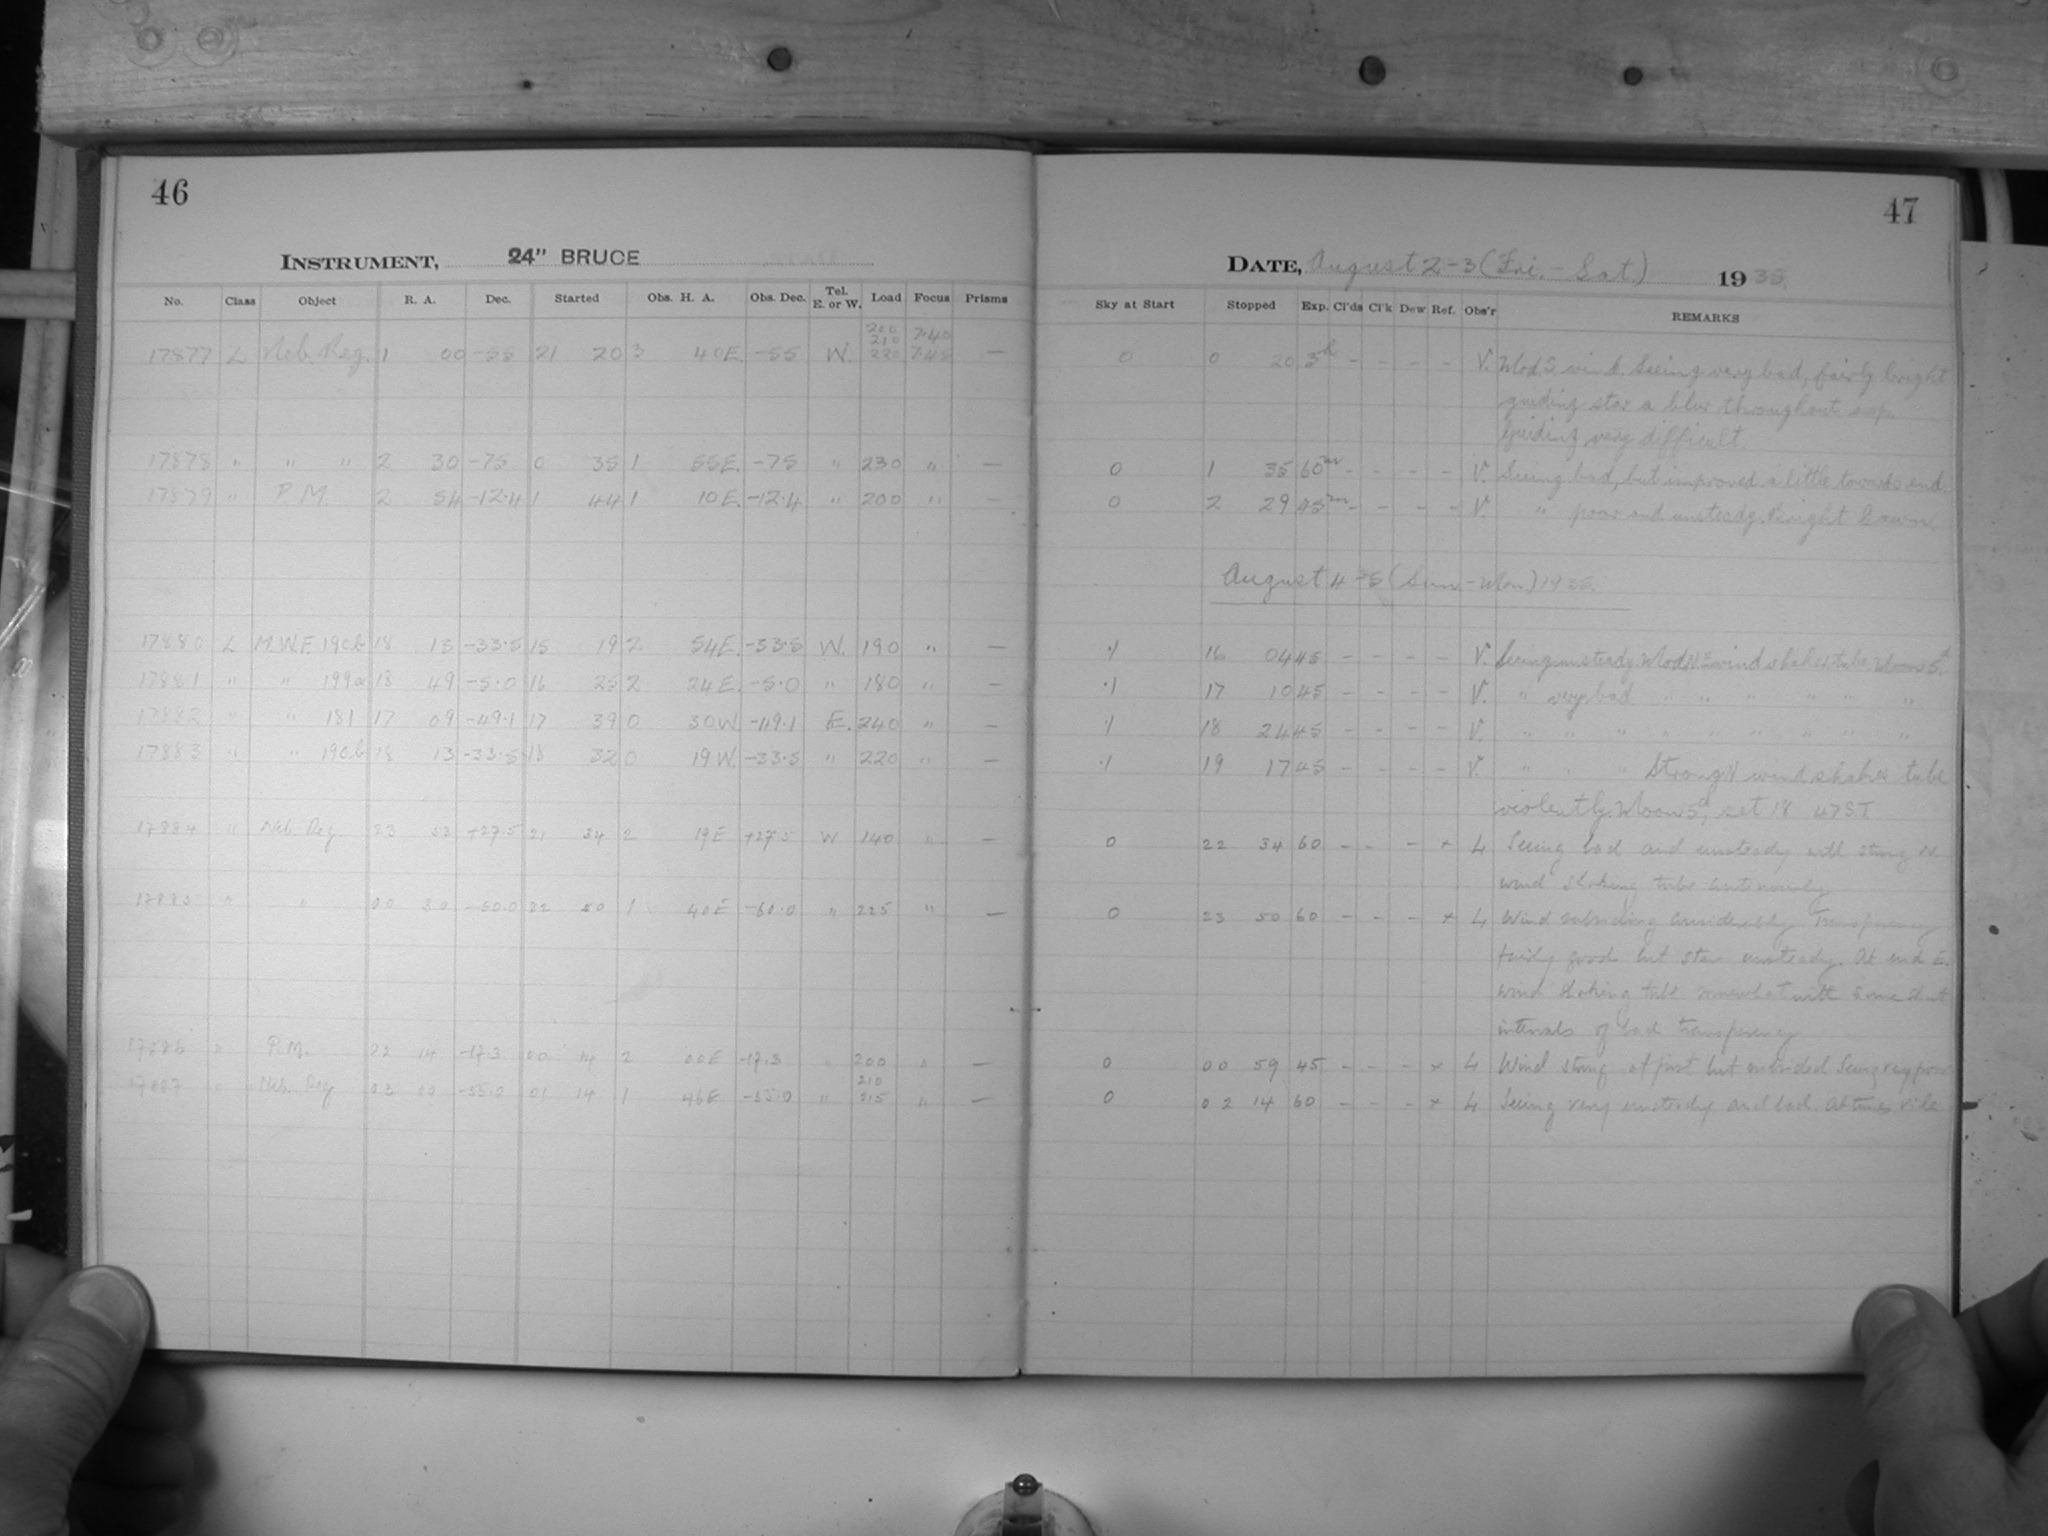 46
INSTRUMENT, 24" BRUCE
No. Class Object R. A. Dec. Started Obs. H. A. Obs. Dec. Tel. E. or W. Load Focus Prisms
200 7.40
210
17877 L Neb. Reg. 1 00 -55 21 20 3 40E. -55 W. 230 7.45 —
17878 " " " 2 30 -75 0 35 1 55E. -75 " 230 " —
17879 " P.M. 2 54 -12.4 1 44 1 10E. -12.4 " 200 " —
17880 L M.W.F. 190b 18 13 -33.5 15 19 2 54E. -33.5 W. 190 " —
17881 " " 199a 18 49 -5.0 16 25 2 24E. -5.0 " 180 " —
17882 " " 181 17 09 -49.1 17 39 0 30W. -49.1 E. 240 " —
17883 " " 190b 18 13 -33.5 18 32 0 19W. -33.5 " 220 " —
17884 " Neb. Reg. 23 53 +27.5 21 34 2 19E +27.5 W 140 " —
17885 " " 00 30 -60.0 22 50 1 40E -60.0 " 225 " —
17886 " P.M. 22 14 -17.3 00 14 2 00E -17.3 " 200 " —
210
17887 " Neb. Reg 03 00 -55.0 01 14 1 46E -55.0 " 215 " —
47
DATE, August 2-3 (Fri. - Sat.) 1935.
Sky at Start Stopped Exp. Cl'ds Cl'k Dew Ref. Obs'r REMARKS
0 0 20 3h - - - - V. Mod. S. wind. Seeing very bad, fairly bright
guiding star a blur throughout exp.
Guiding very difficult.
0 1 35 60m - - - - V. Seeing bad, but improved a little towards end.
0 2 29 45m - - - - V. " poor and unsteady. Bright Dawn
August 4-5 (Sun.-Mon.) 1935.
.1 16 04 45 - - - - V. Seeing unsteady. Mod. wind shakes tube. Moon 5d
.1 17 10 45 - - - - V. " very bad " " " " " "
.1 18 24 45 - - - - V. " " " " " " " " "
.1 19 17 45 - - - - V. " " " Strong N wind shakes tube
violently. Moon 5d, set 18 47 S.T.
0 22 34 60 - - - × L Seeing bad and unsteady with strong N
wind shaking tube
0 23 50 60 - - - × L Wind subsiding considerably. Transparency
fairly good but star unsteady. At end E.
wind shaking tube somewhat with some short
intervals of bad transparency
0 00 59 45 - - - × L Wind strong at first but subsided. Seeing very poor
0 02 14 60 - - - × L Seeing very unsteady and bad. At times